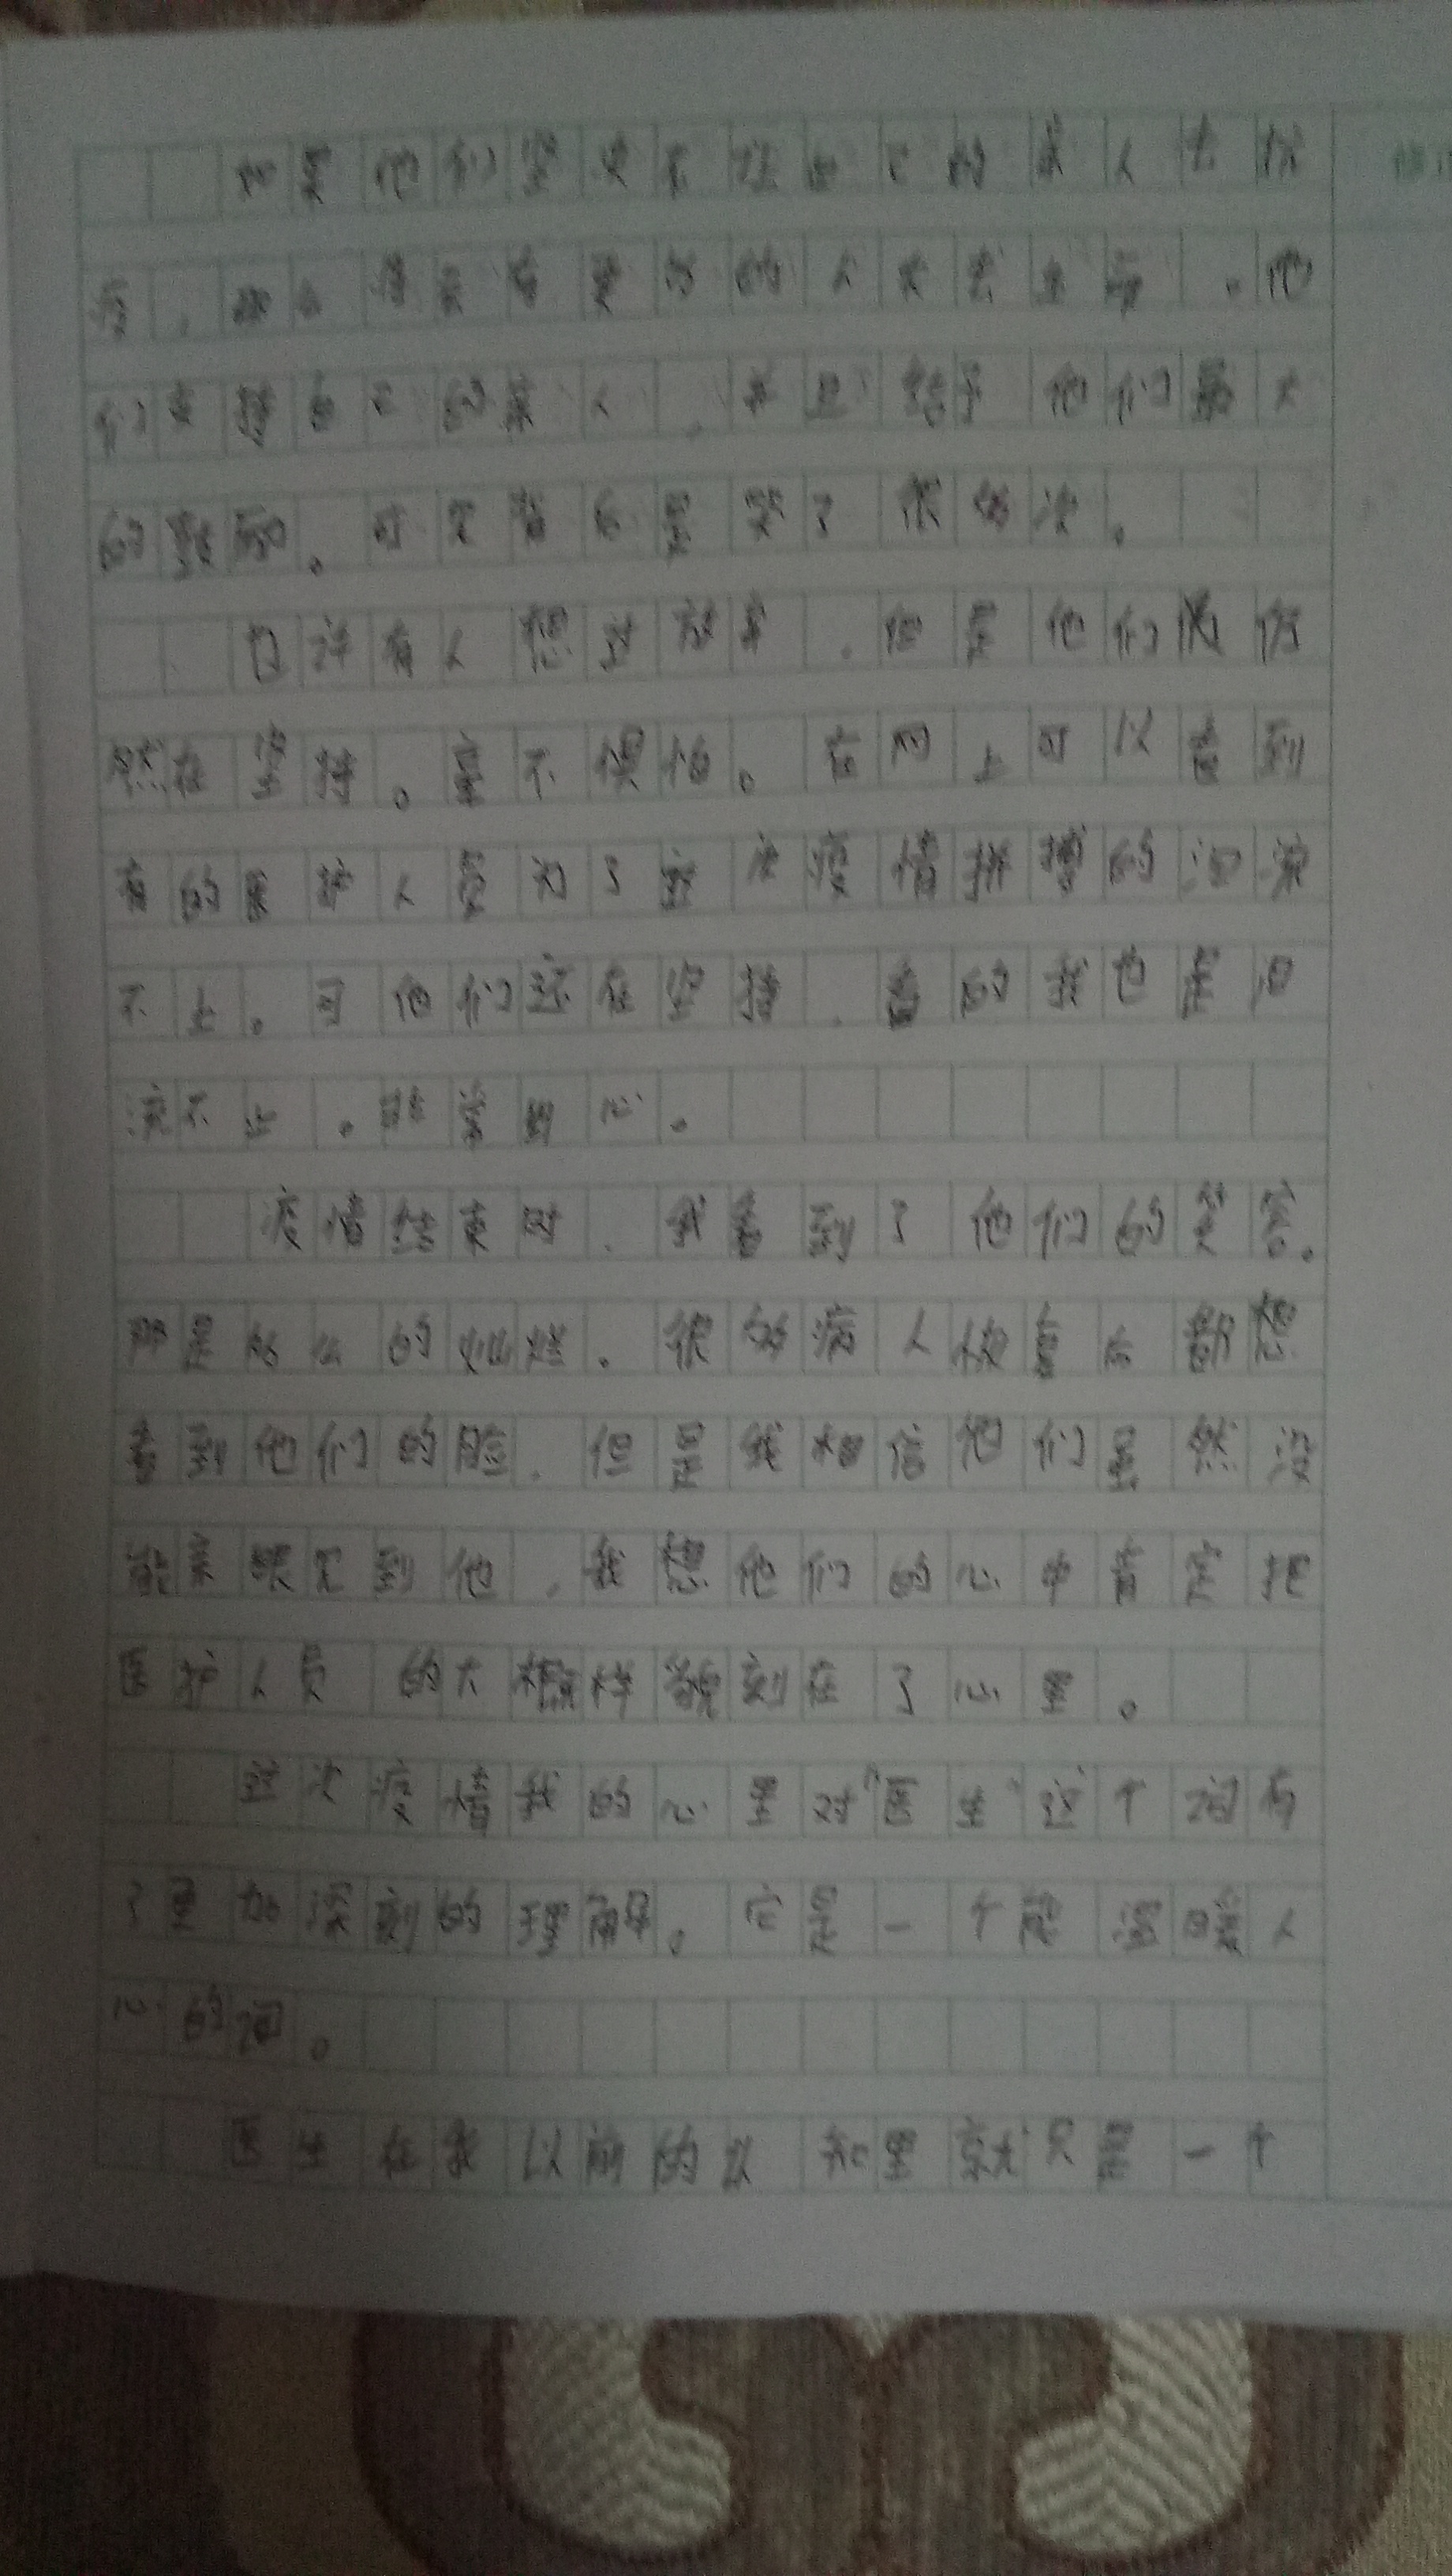 如果他们坚决不让自己的家人去抗
疫,那么将会有更多的人失去生命。他
们支持自己的家人,并且给予他们最大
的鼓励。可又背后是哭了很多次。
也许有人想过放弃,但是他们依依
然在坚持。毫不惧怕。在网上可以看到
有的医护人员为了这次疫情拼搏的泪流
不止。可他们还在坚持,看的我也是泪
流不止。非常的心。
疫情结束时,我看到了他们的笑容。
那是多么的灿烂。很多病人恢复后都想
看到他们的脸,但是我相信他们虽然没
能亲眼见到他,我想他们的心中肯定把
医护人员的大概样貌刻在了心里。
这次疫情我的心里对"医生"这个词有
了更加深刻的理解。它是一个能温暖人
心的词。
医生在我以前的认知里就只是一个